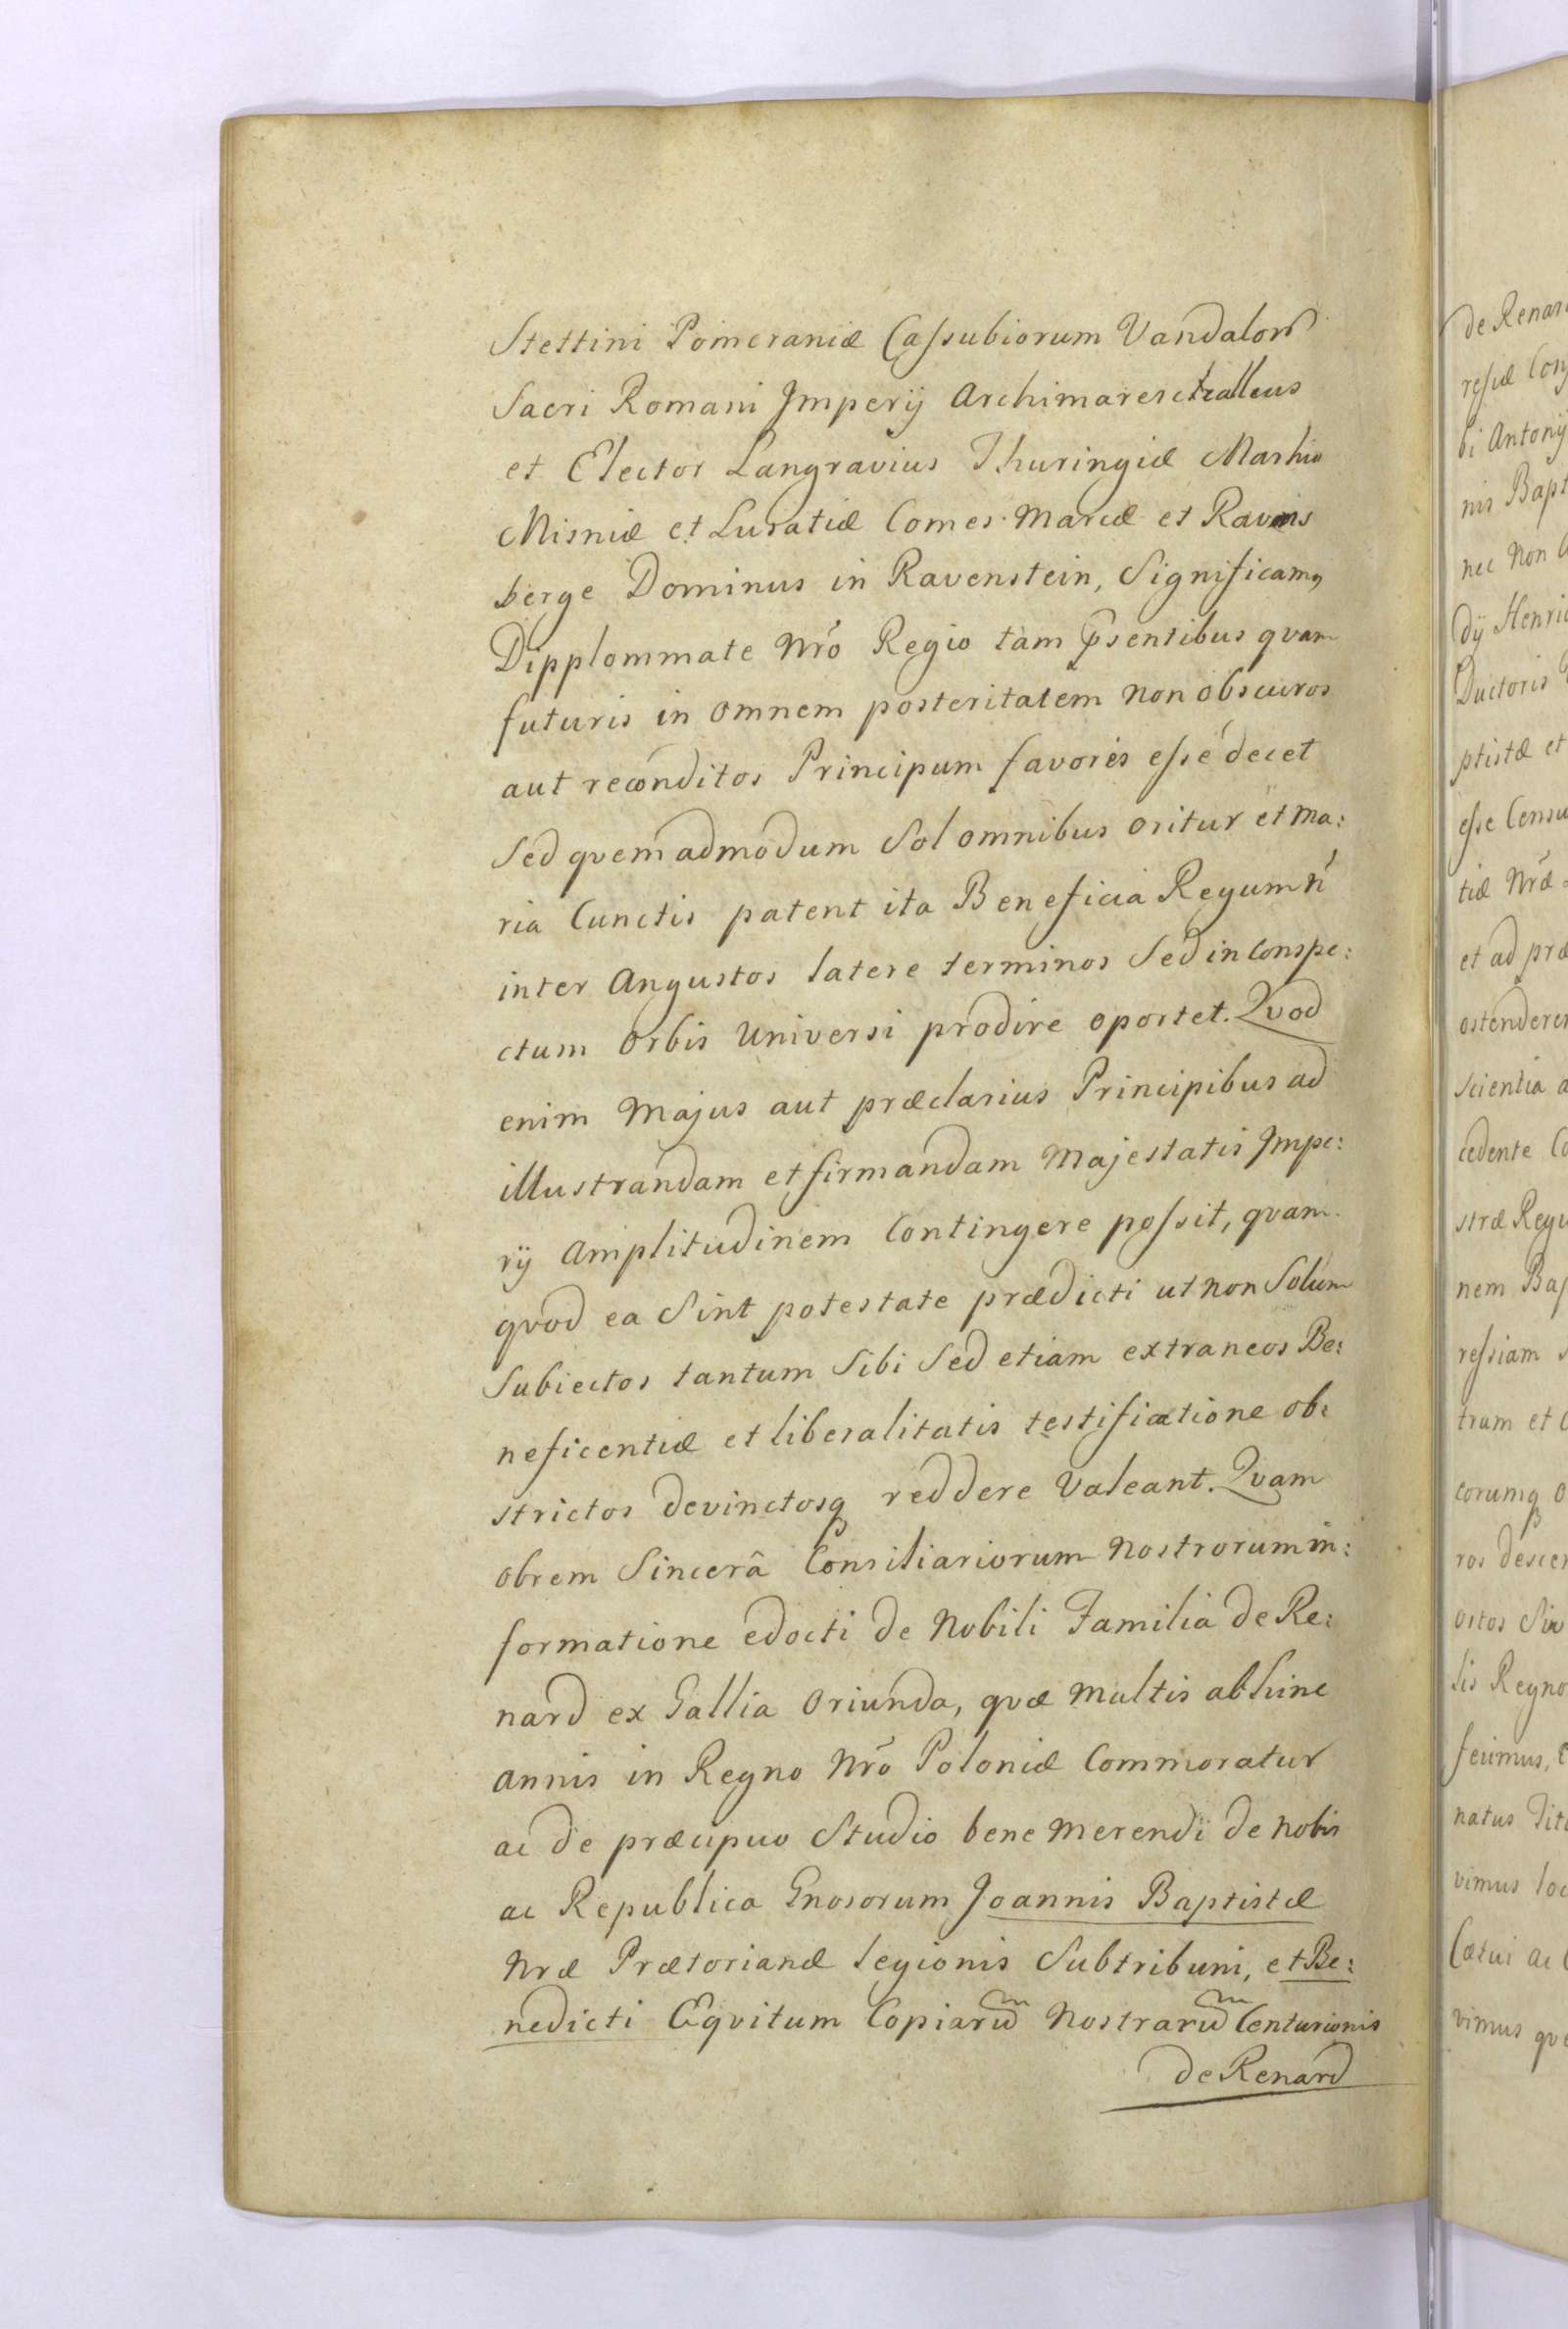 Stettini Pomeraniæ Cassubiorum Vandalorũ
Sacri Romani Imperij Archimaresctrallcus
et Elector Langravius Thuringiæ Marhio
Misniæ et Lusatiæ Comes Marcæ et Ravens
berge Dominus in Ravenstein, Significamq
Dipplommate Nrõ Regio tam p̃sentibus qvam
futuris in omnem posteritatem non obscuros
aut reconditos Principum favores esse decet
Sed qvemadmodum Sol omnibus oritur et ma:
ria Cunctis patent ita Beneficia Regum ñ
inter Angustos latere terminos Sed in Conspe:
ctum Orbis Universi prodire oportet. Qvod
enim Majus aut præclarius Principibus ad
illustrandam et firmandam Majestatis Impe:
rij Amplitudinem Contingere possit, qvam
qvod ea Sint potestate prædicti ut non Solum
Subiectos tantum Sibi Sed etiam extraneos Be:
neficentiæ et liberalitatis testificatione ob:
strictos devinctosq reddere Valeant. Qvam
obrem Sincerâ Consiliariorum Nostrorum in:
formatione edocti de Nobili Familia de Re:
nard ex Gallia Oriunda, qvæ Multis abhinc
annis in Regno Nrõ Poloniæ Commoratur
ac de præcipuo Studio bene Merendi de Nobis
ac Republica Gnosorum Joannis Baptistæ
Nræ Prætorianæ legionis Subtribuni, et Be:
nedicti Eqvitum Copiarũ Nostrarũ Centurionis
de Renard
de Renar
ressiæ Con
bi Antonij
nis Bapt
nec Non
dij Henri
Ductoris
ptistæ et
esse Censu
tiæ Nrǣ
et ad præ
ostendere
Scientia a
cedente Co
stræ Regi
nem Bap
ressiam
tram et C
corumq O
ros descen
ortos Siv
lis Regno
feumus,
natus Titu
vimus loc
Cætui ac
vimus qve